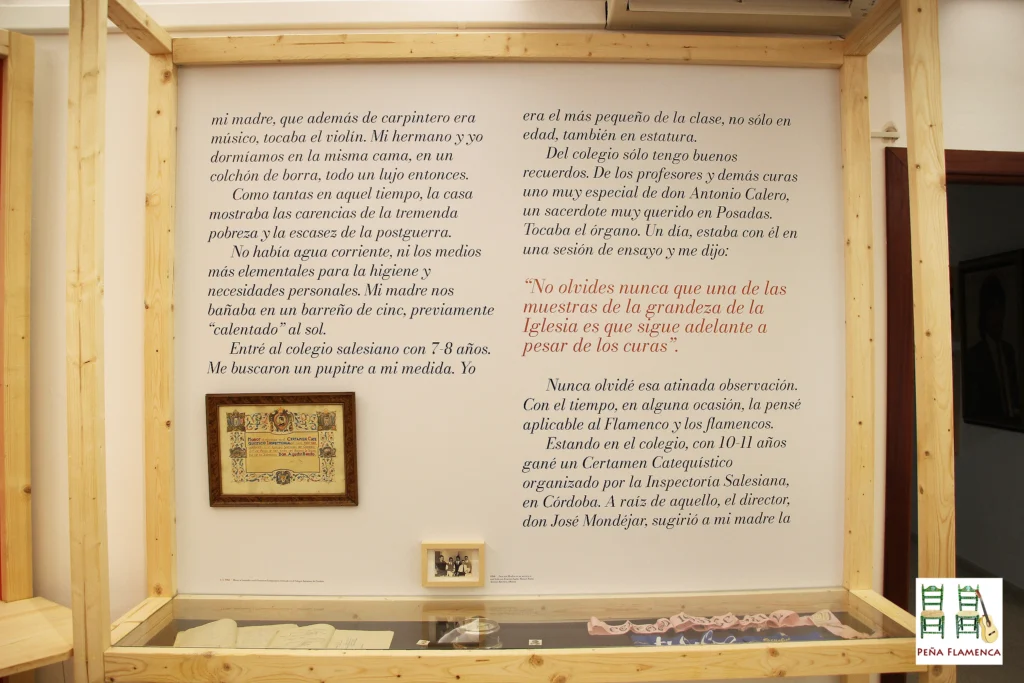 mi madre, que además de carpintero era
músico, tocaba el violín. Mi hermano y yo
dormíamos en la misma cama, en un
colchón de borra, todo un lujo entonces.
Como tantas en aquel tiempo, la casa
mostraba las carencias de la tremenda
pobreza y la escasez de la postguerra.
No había agua corriente, ni los medios
más elementales para la higiene y
necesidades personales. Mi madre nos
bañaba en un barreño de cinc, previamente
“calentado” al sol.
Entré al colegio salesiano con 7-8 años.
Me buscaron un pupitre a mi medida. Yo
era el más pequeño de la clase, no sólo en
edad, también en estatura.
Del colegio sólo tengo buenos
recuerdos. De los profesores y demás curas
uno muy especial de don Antonio Calero,
un sacerdote muy querido en Posadas.
Tocaba el órgano. Un día, estaba con él en
una sesión de ensayo y me dijo:
“No olvides nunca que una de las
muestras de la grandeza de la
Iglesia es que sigue adelante a
pesar de los curas”.
Nunca olvidé esa atinada observación.
Con el tiempo, en alguna ocasión, la pensé
aplicable al Flamenco y los flamencos.
Estando en el colegio, con 10-11 años
gané un Certamen Catequístico
organizado por la Inspectoría Salesiana,
en Córdoba. A raíz de aquello, el director,
don José Mondéjar, sugirió a mi madre la
PEÑA FLAMENCA